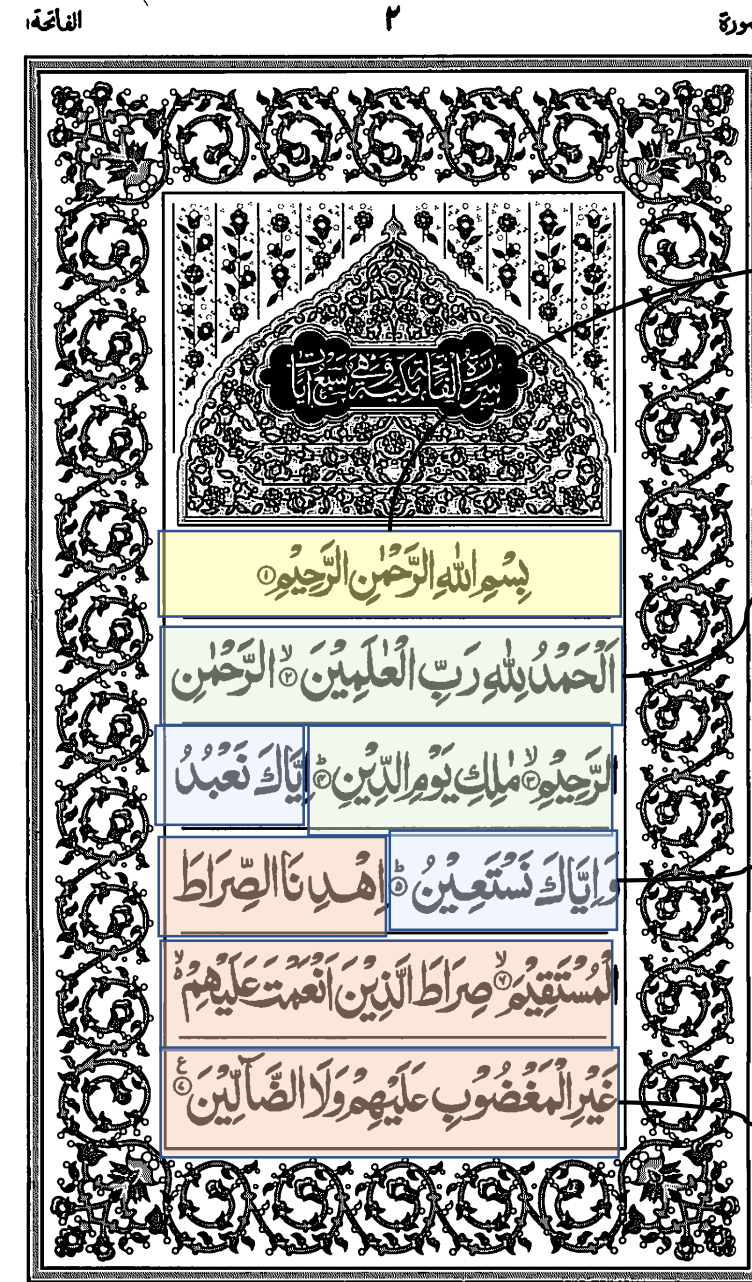 سورة ٢ الفاتحة ١
سورة الفاتحة مكية وهي سبع آيات
بِسْمِ اللّٰهِ الرَّحْمٰنِ الرَّحِيْمِ ①
اَلْحَمْدُ لِلّٰهِ رَبِّ الْعٰلَمِيْنَ ۙ﴿٢﴾ الرَّحْمٰنِ
الرَّحِيْمِ ۙ﴿٣﴾ مٰلِكِ يَوْمِ الدِّيْنِ ؕ﴿٤﴾ اِيَّاكَ نَعْبُدُ
وَاِيَّاكَ نَسْتَعِيْنُ ؕ﴿٥﴾ اِهْدِنَا الصِّرَاطَ
الْمُسْتَقِيْمَ ۙ﴿٦﴾ صِرَاطَ الَّذِيْنَ اَنْعَمْتَ عَلَيْهِمْ ۙ۬
غَيْرِ الْمَغْضُوْبِ عَلَيْهِمْ وَلَا الضَّآلِّيْنَ ﴿٧﴾ ع